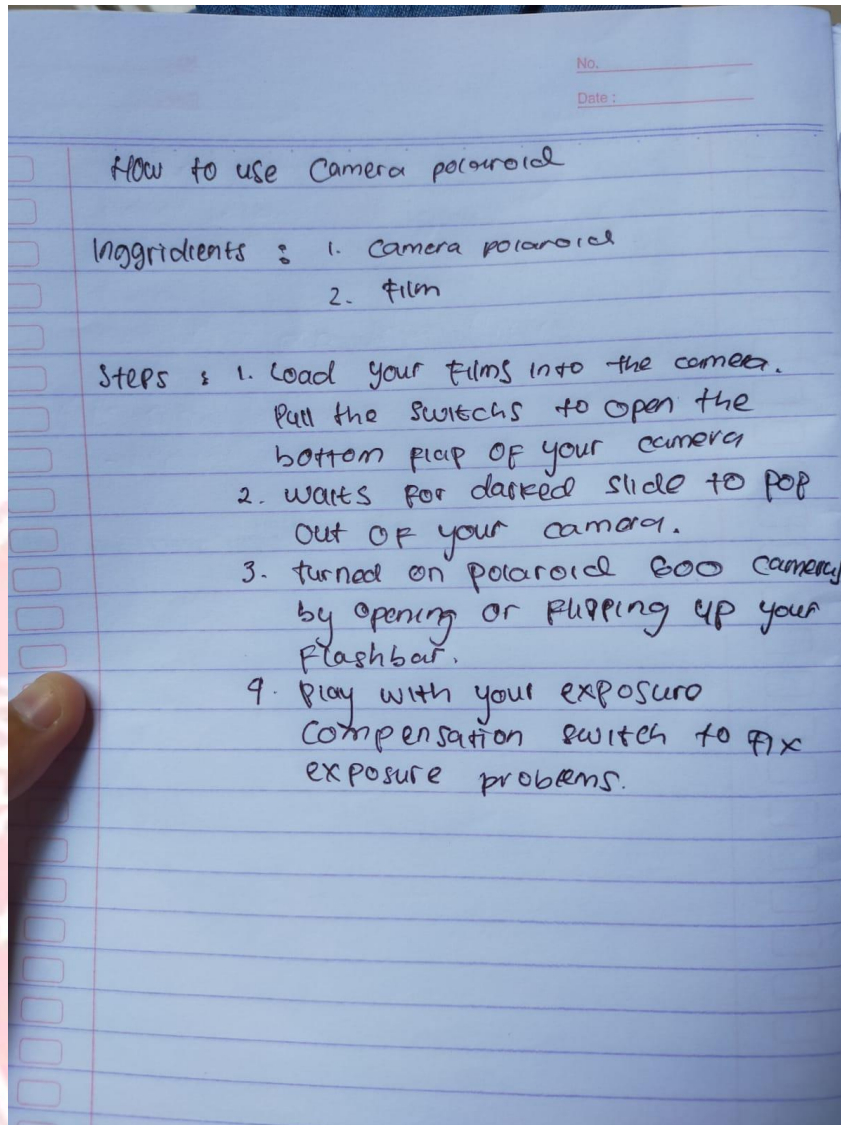 No.
Date :
How to use Camera polouroid
Inggridients : 1. Camera polaroid
2. Film
Steps : 1. Load your films into the camera.
Pull the switchs to open the
bottom flap of your camera
2. waits for darked slide to pop
out of your camera.
3. turned on polaroid 600 camera
by opening or flipping up your
flashbar.
4. play with your exposure
compensation switch to fix
exposure problems.